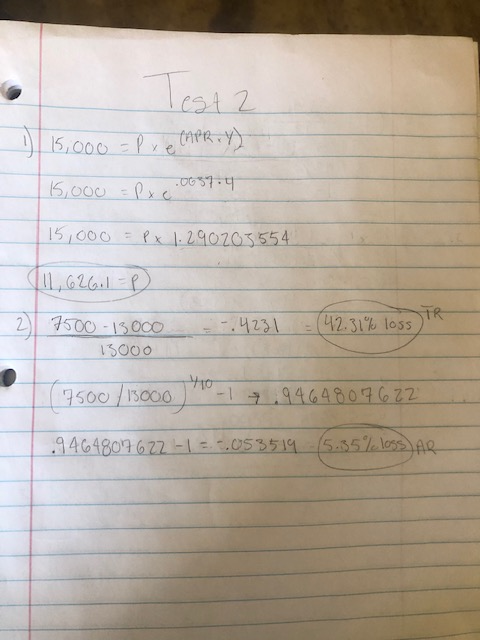 Test 2
1) 15,000 = P × e^(APR · Y)
15,000 = P × e^.0637·4
15,000 = P × 1.290203554
11,626.1 = P
2) (7500 - 13000) / 13000 = -.4231 = 42.31% loss TR
(7500/13000)^1/10 - 1 → .9464807622
.9464807622 - 1 = -.053519 = 5.35% loss AR